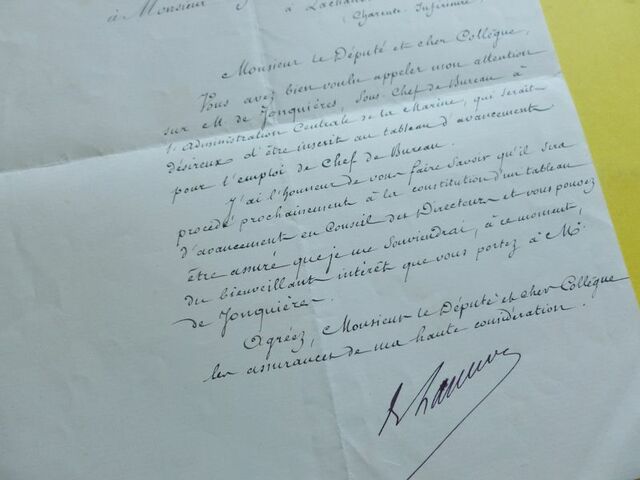 à Monsieur
à Lachau
(Charente Inférieure)
Monsieur le Député et cher Collègue,
Vous avez bien voulu appeler mon attention
sur M. de Jonquières, Sous-Chef de Bureau à
l'Administration Centrale de la Marine, qui serait
désireux d'être inscrit au tableau d'avancement
pour l'emploi de Chef de Bureau.
J'ai l'honneur de vous faire savoir qu'il sera
procédé prochainement à la constitution d'un tableau
d'avancement en Conseil des Directeurs et vous pouvez
être assuré que je me souviendrai, à ce moment,
du bienveillant intérêt que vous portez à Mr.
de Jonquières.
Agréez, Monsieur le Député et cher Collègue
les assurances de ma haute considération.